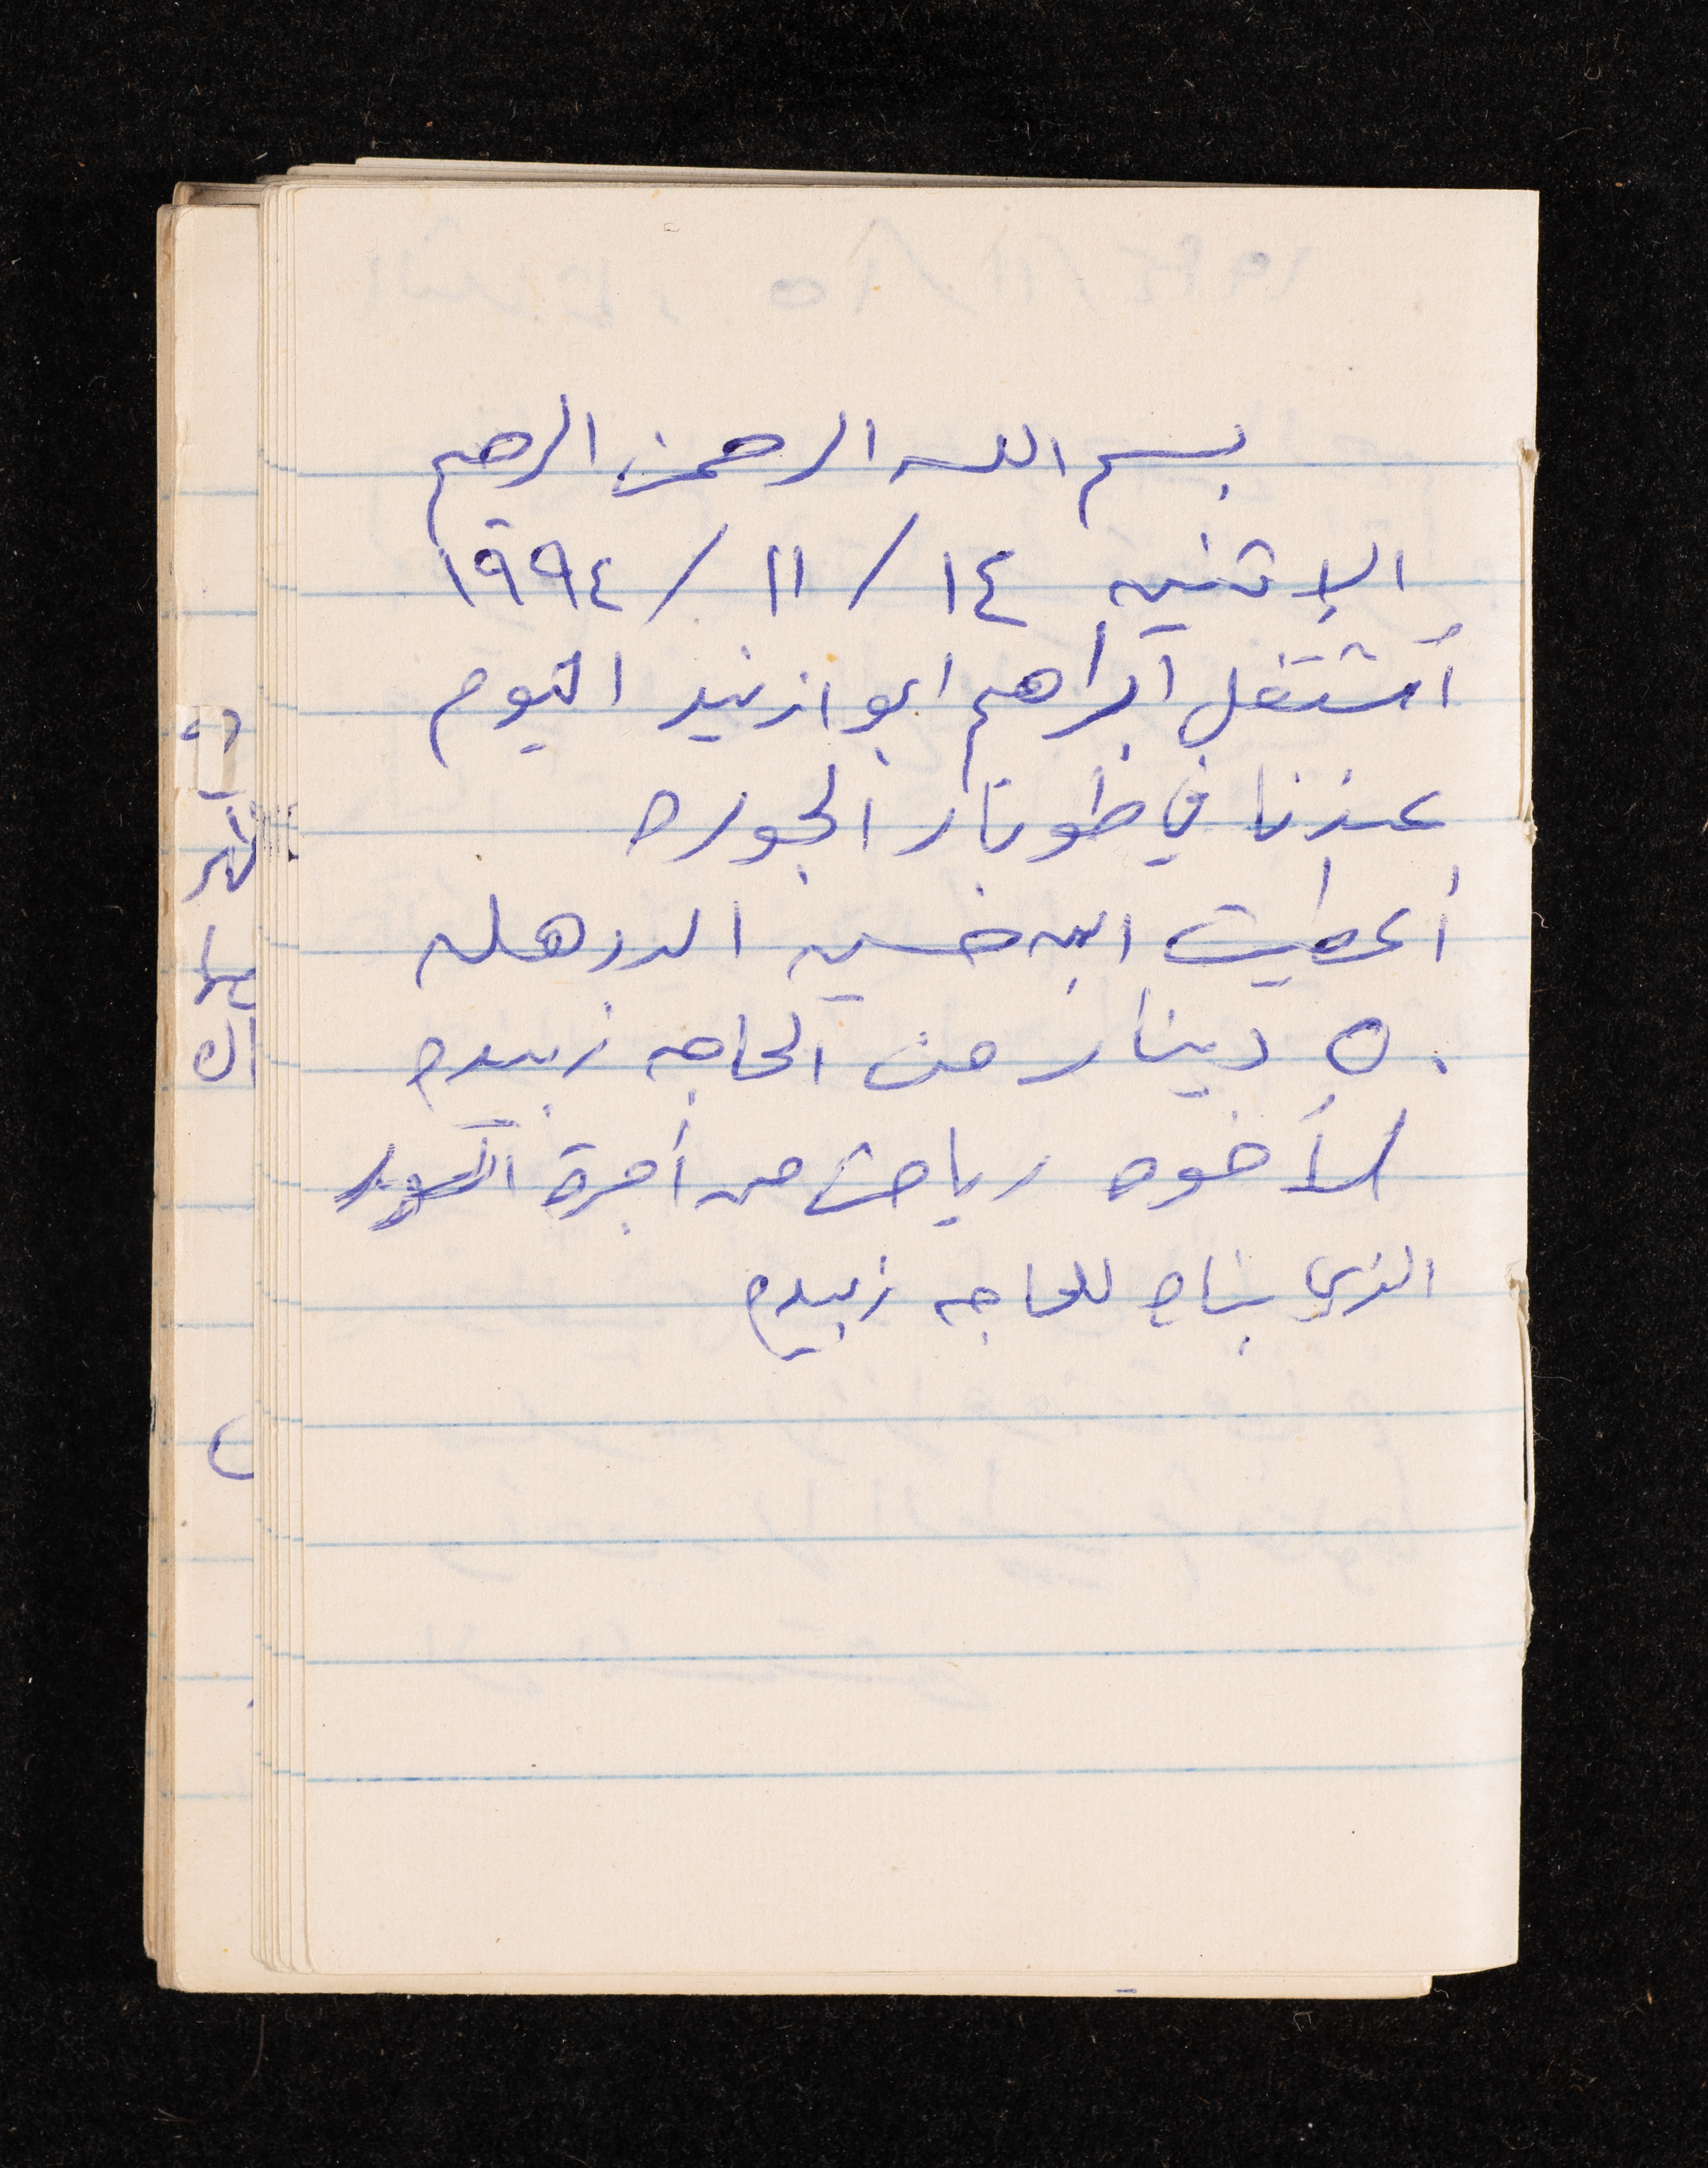 بسم الله الرحمن الرحيم
الإثنين ١٤ / ١١ / ١٩٩٤
أشتغل ابراهيم ابو ازنيد اليوم
عندنا في طوبار الجوره
أعطيت ابن حسين الدرهله
٥٠ دينار من الحاجه زبيده
لأخوه رياض من أجرة السور
الذي بناه للحاجه زبيده